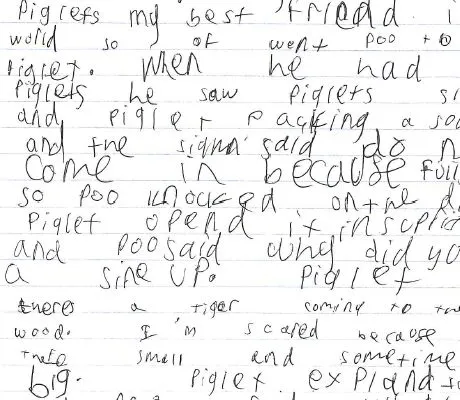 Piglets my best friend i
world so of went poo to
Piglet. When he had
Piglets he saw piglets si
and piglet packing a
and the sign said do n
come in because
so poo knocked on the d
Piglet opend it
and Poo said why did yo
a sine up. Piglet
theres a tiger coming to the
wood. I'm scared because
small and sometime
big. Piglet expland